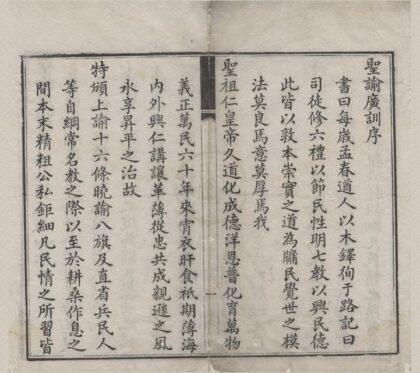 聖諭廣訓序
書曰每歲孟春遒人以木鐸徇于路記曰
司徒修六禮以節民性明七教以興民德
此皆以敦本崇實之道為牖民覺世之模
法莫良焉意莫厚焉我
聖祖仁皇帝久道化成德洋恩普仁育萬物
義正萬民六十年來宵衣旰食祇期薄海
內外興仁講讓革薄從忠共成親遜之風
永享昇平之治故
特頒上諭十六條曉諭八旗及直省兵民人
等自綱常名教之際以至於耕桑作息之
間本末精粗公私鉅細凡民情之所習皆